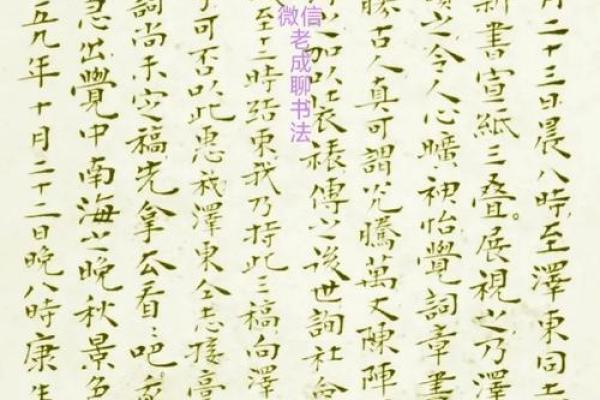 月二十三日晨八時至澤東同
新書宣紙三叠。展視之乃澤
之令人心曠神怡覺詞章書
勝古人真可謂光騰萬丈陳陣
之加以裝裱傳之後世詢社
至三時結束我乃持此三稿向澤
可否以此惠我澤東仝志接
詞尚未定稿先拿去看〻吧
急出覺中南海之晚秋景色
五九年十月二十二日晚八時康生
微信
老成聊书法